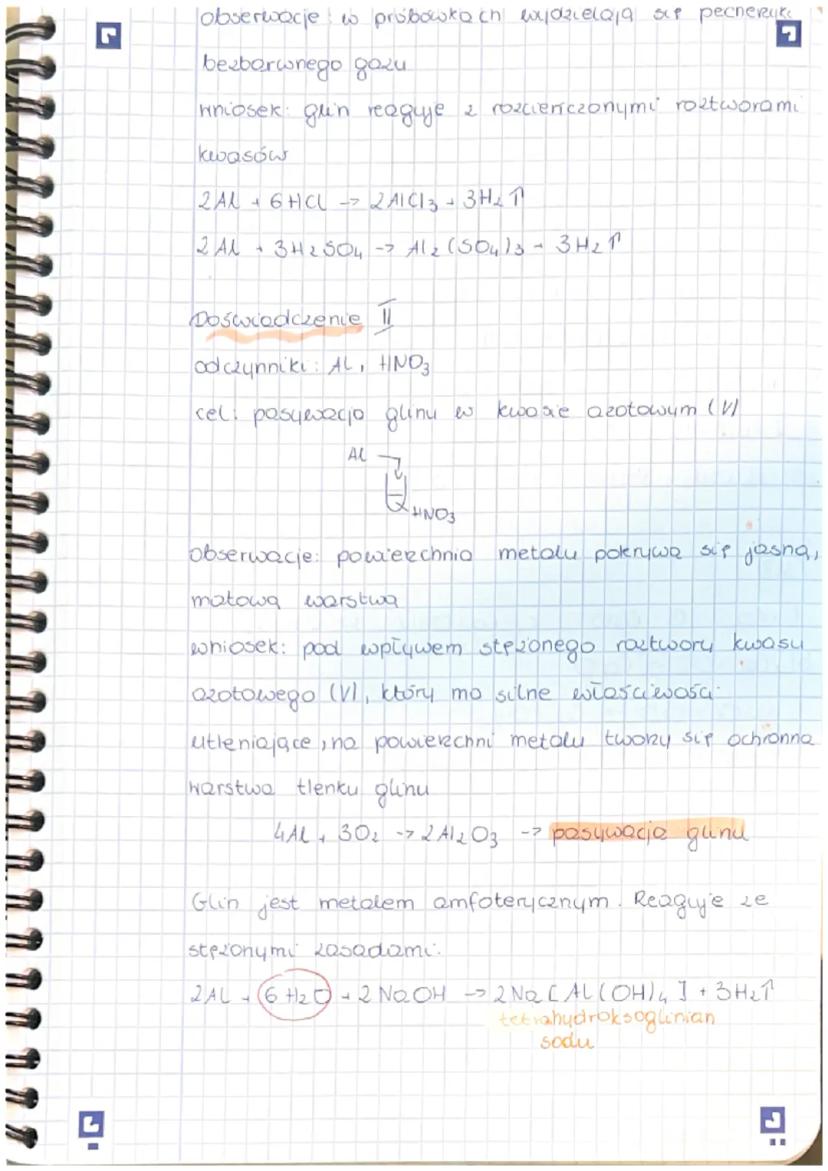 obserwacje: w próbówkach wydzielają się pęcherzyki
bezbarwnego gazu
wniosek: glin reaguje z rozcieńczonymi roztworami
kwasów
2Al + 6HCl -> 2AlCl3 + 3H2↑
2Al + 3H2SO4 -> Al2(SO4)3 + 3H2↑
Doświadczenie II
odczynniki: Al, HNO3
cel: pasywacja glinu w kwasie azotowym (V)
Al
HNO3
obserwacje: powierzchnia metalu pokrywa się jasną,
matową warstwą
wniosek: pod wpływem stężonego roztworu kwasu
azotowego (V), który ma silne właściwości
utleniające, na powierzchni metalu tworzy się ochronna
warstwa tlenku glinu
4Al + 3O2 -> 2Al2O3 -> pasywacja glinu
Glin jest metalem amfoterycznym. Reaguje ze
stężonymi zasadami.
2Al + 6H2O + 2NaOH -> 2Na[Al(OH)4] + 3H2↑
tetrahydroksoglinian
sodu